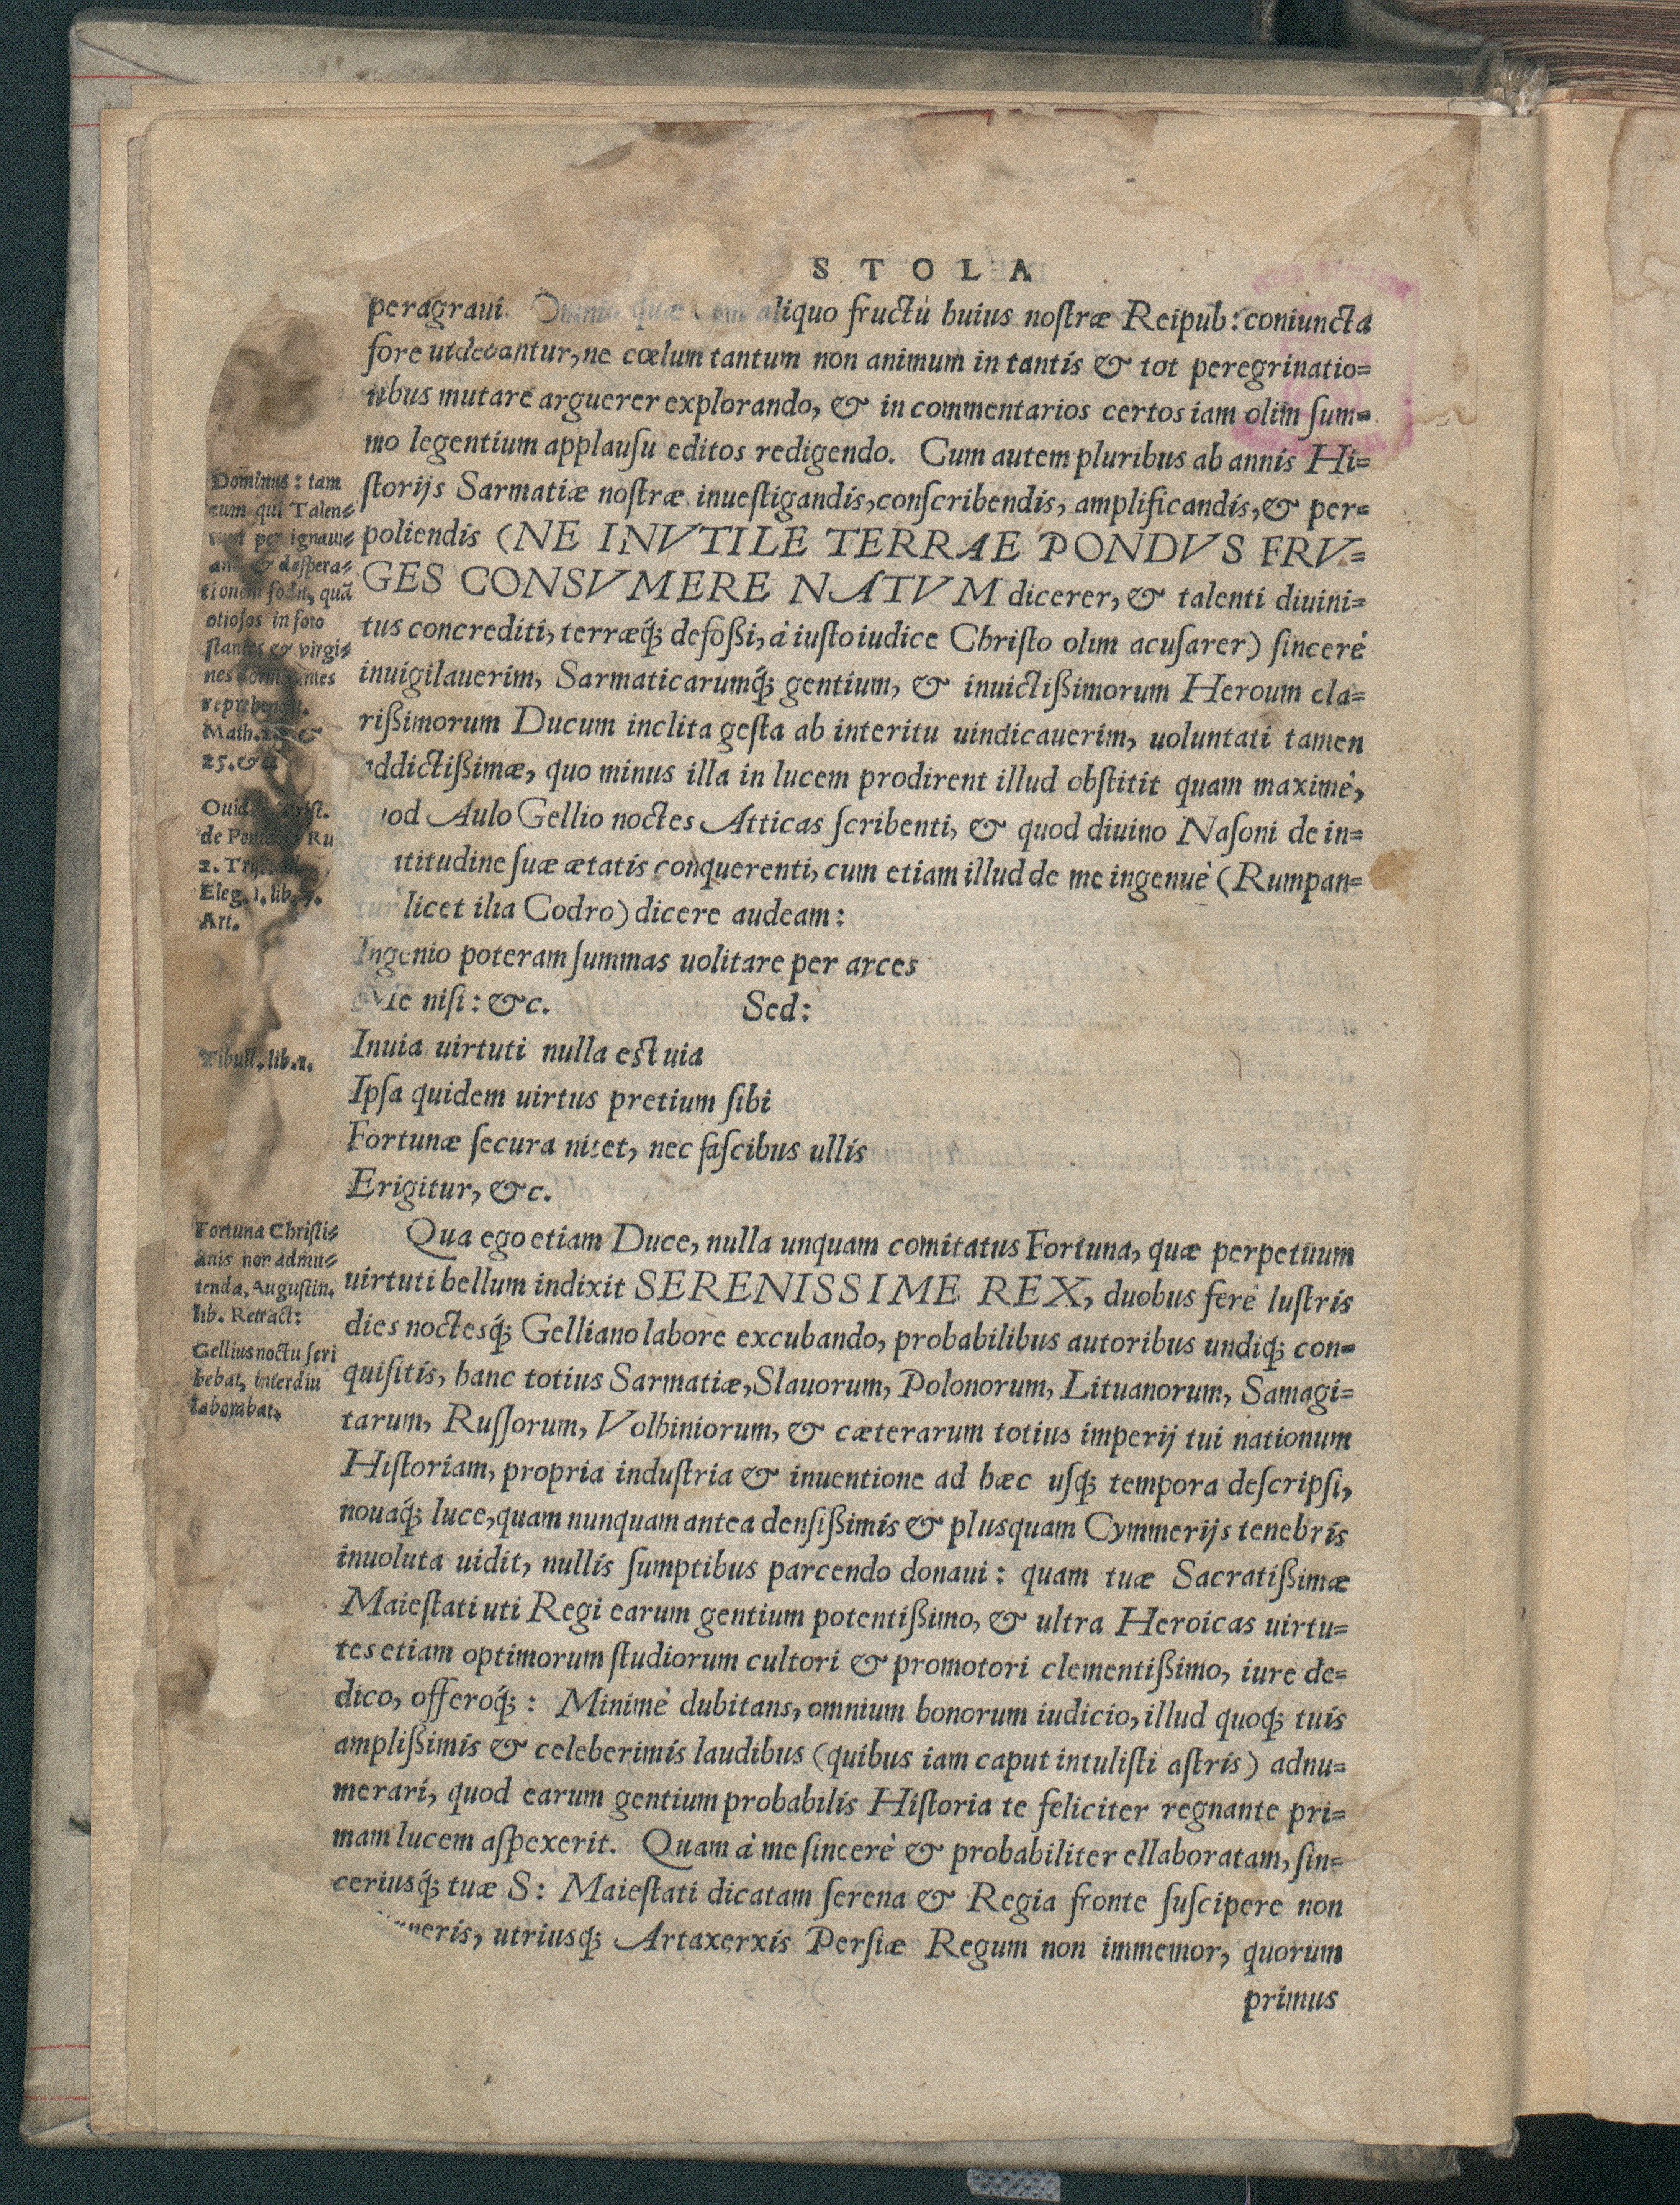 STOLA
peragraui. Omnia quæ cum aliquo fructu huius noſtræ Reipub: coniuncta
fore uidebantur, ne cœlum tantum non animum in tantis & tot peregrinatio=
nibus mutare arguerer explorando, & in commentarios certos iam olim ſum=
mo legentium applauſu editos redigendo. Cum autem pluribus ab annis Hi=
ſtorijs Sarmatiæ noſtræ inueſtigandis, conſcribendis, amplificandis, & per=
poliendis (NE INVTILE TERRAE PONDVS FRV=
GES CONSVMERE NATVM dicerer, & talenti diuini=
tus concrediti, terræq́; defoßi, à iuſto iudice Chriſto olim acuſarer) ſincerè
inuigilauerim, Sarmaticarumq́; gentium, & inuictißimorum Heroum cla=
rißimorum Ducum inclita geſta ab interitu uindicauerim, uoluntati tamen
addictißimæ, quo minus illa in lucem prodirent illud obſtitit quam maximè,
quod Aulo Gellio noctes Atticas ſcribenti, & quod diuino Naſoni de in=
gratitudine ſuæ ætatis conquerenti, cum etiam illud de me ingenuè (Rumpan=
tur licet ilia Codro) dicere audeam:
Ingenio poteram ſummas uolitare per arces
Me niſi: &c. Sed:
Inuia uirtuti nulla est uia
Ipſa quidem uirtus pretium ſibi
Fortunæ ſecura nitet, nec faſcibus ullis
Erigitur, &c.
Qua ego etiam Duce, nulla unquam comitatus Fortuna, quæ perpetuum
uirtuti bellum indixit SERENISSIME REX, duobus ferè luſtris
dies noctesq́; Gelliano labore excubando, probabilibus autoribus undiq́; con=
quiſitis, hanc totius Sarmatiæ, Slauorum, Polonorum, Lituanorum, Samagi=
tarum, Ruſſorum, Volhiniorum, & cæterarum totius imperij tui nationum
Hiſtoriam, propria induſtria & inuentione ad hæc uſq́; tempora deſcripſi,
nouaq́; luce, quam nunquam antea denſißimis & plusquam Cymmerijs tenebris
inuoluta uidit, nullis ſumptibus parcendo donaui: quam tuæ Sacratißimæ
Maieſtati uti Regi earum gentium potentißimo, & ultra Heroicas uirtu=
tes etiam optimorum ſtudiorum cultori & promotori clementißimo, iure de=
dico, offeroq́;: Minimè dubitans, omnium bonorum iudicio, illud quoq́; tuis
amplißimis & celeberimis laudibus (quibus iam caput intuliſti aſtris) adnu=
merari, quod earum gentium probabilis Hiſtoria te feliciter regnante pri=
mam lucem aſpexerit. Quam à me ſincerè & probabiliter ellaboratam, ſin=
ceriusq́; tuæ S: Maieſtati dicatam ſerena & Regia fronte ſuſcipere non
utriusq́; Artaxerxis Perſiæ Regum non immemor, quorum
primus
Dominus: tam
eum qui Talen=
tum per ignaui=
am & deſpera=
tionem fodit, quā
otioſos in foro
ſtantes & virgi=
nes dormientes
reprehendit.
Math. &
25.
Ouid. Triſt.
de Ponto
2. Triſt.
Eleg. 1. lib.
Art.
Tibull. lib.
Fortuna Chriſti=
anis non admit=
tenda, Auguſtin.
lib. Retract:
Gellius noctu ſcri
bebat, interdiu
laborabat.